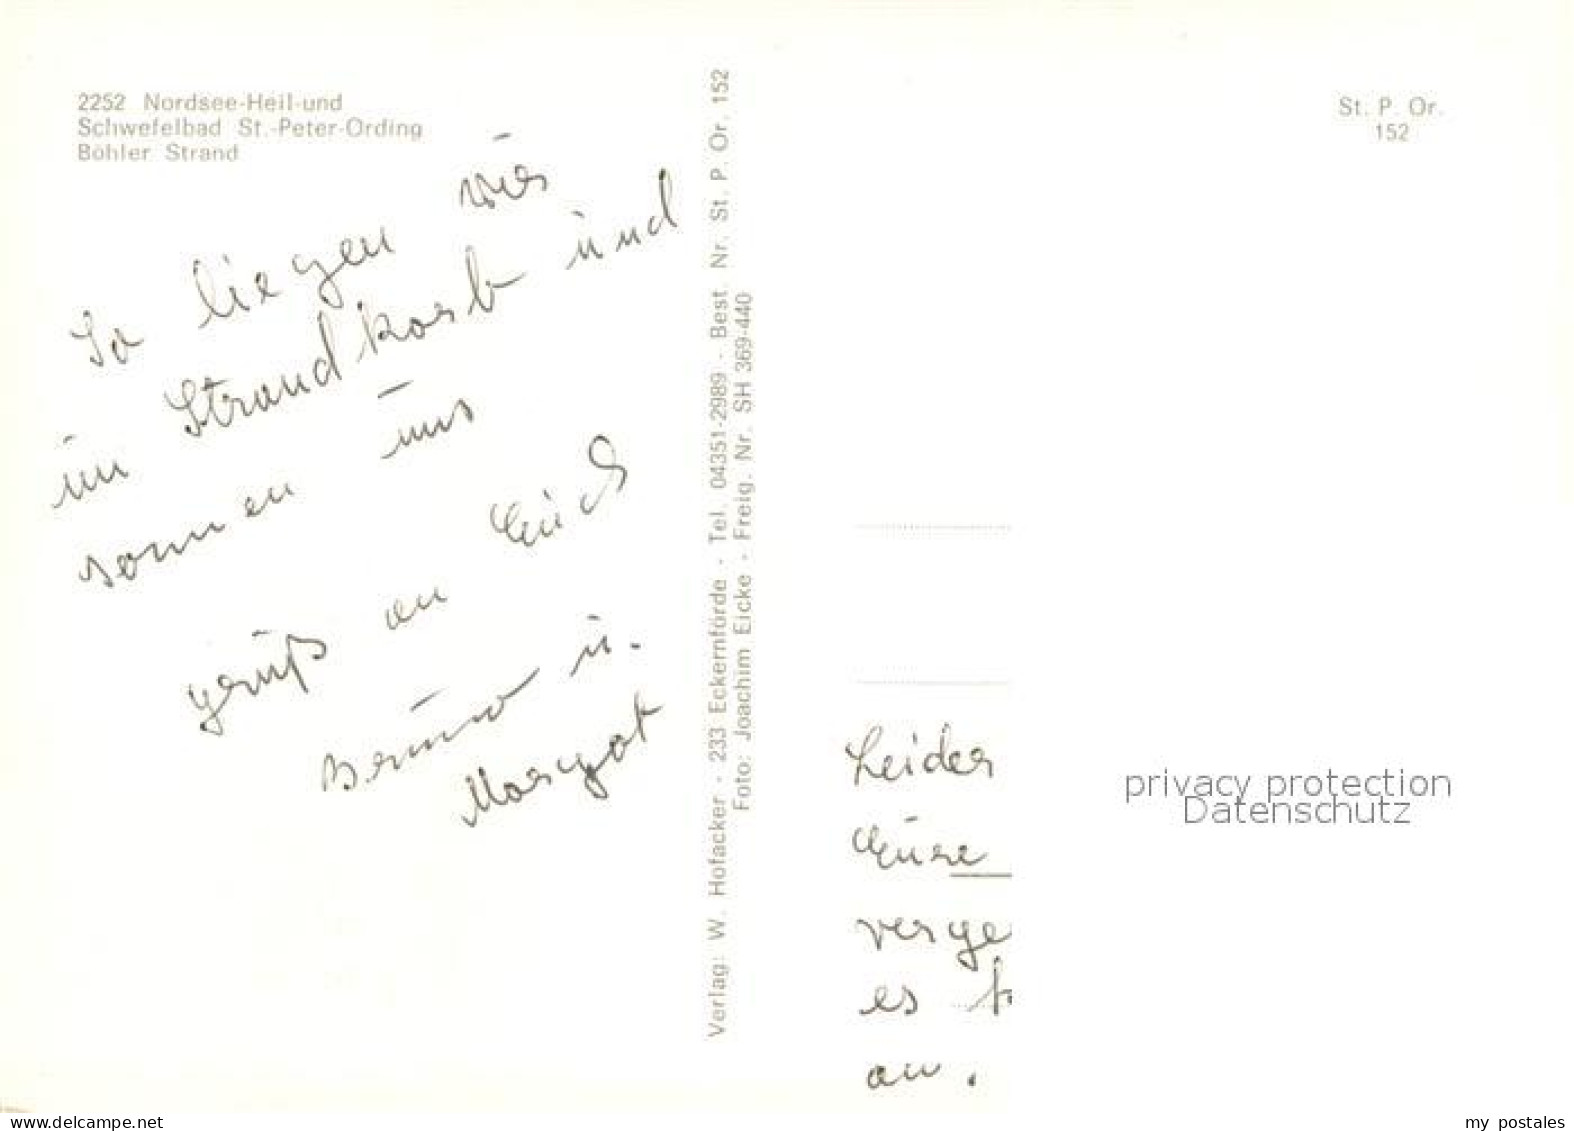 2252 Nordsee-Heil-und
Schwefelbad St.-Peter-Ording
Böhler Strand
So liegen wir
im Strandkorb und
sonnen uns
gruß an Euch
Bruno u.
Margot
Verlag: W. Hofacker - 233 Eckernförde - Tel. 04351-2989 - Best. Nr. St. P. Or. 152
Foto: Joachim Eicke - Freig. Nr. SH 369-440
St. P. Or.
152
Leider
Eure
verge
es k
an.
privacy protection
Datenschutz
www.delcampe.net
my postales